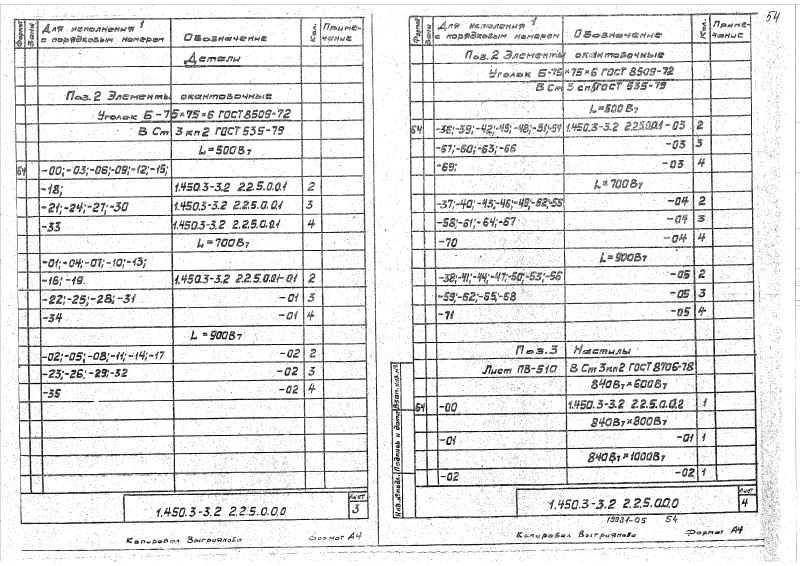 Формат
Зона
Для исполнения 1
с порядковым номером
Обозначение
Кол.
Приме-
чание
Детали
Поз.2 Элементы окантовочные
Уголок Б-75×75×6 ГОСТ 8509-72
В Ст 3 кп2 ГОСТ 535-79
L=500Вт
б4 -00;-03;-06;-09;-12;-15;
-18; 1.450.3-3.2 2.2.5.0.0.1 2
-21;-24;-27;-30 1.450.3-3.2 2.2.5.0.0.1 3
-33 1.450.3-3.2 2.2.5.0.0.1 4
L=700Вт
-01;-04;-07;-10;-13;
-16;-19 1.450.3-3.2 2.2.5.0.0.1-01 2
-22;-25;-28;-31 -01 3
-34 -01 4
L=900Вт
-02;-05;-08;-11;-14;-17 -02 2
-23;-26;-29;-32 -02 3
-35 -02 4
1.450.3-3.2 2.2.5.0.0.0
Лист
3
Копировал Выгриянова Формат А4
54
Формат
Зона
Для исполнения 1
с порядковым номером
Обозначение
Кол.
Приме-
чание
Поз.2 Элементы окантовочные
Уголок Б-75×75×6 ГОСТ 8509-72
В Ст 3 сп5 ГОСТ 535-79
L=500Вт
б4 -36;-39;-42;-45;-48;-51;-54 1.450.3-3.2 2.2.5.0.0.1-03 2
-57;-60;-63;-66 -03 3
-69; -03 4
L=700Вт
-37;-40;-43;-46;-49;-52;-55 -04 2
-58;-61;-64;-67 -04 3
-70 -04 4
L=900Вт
-38;-41;-44;-47;-50;-53;-56 -05 2
-59;-62;-65;-68 -05 3
-71 -05 4
Поз.3 Настилы
Лист ПВ-510 В Ст 3 кп2 ГОСТ 8706-78
840Вт×600Вт
б4 -00 1.450.3-3.2 2.2.5.0.0.2 1
840Вт×800Вт
-01 -01 1
840Вт×1000Вт
-02 -02 1
Инв.№подл. Подпись и дата Взам.инв.№
1.450.3-3.2 2.2.5.0.0.0
Лист
4
19931-05 54
Копировал Выгриянова Формат А4